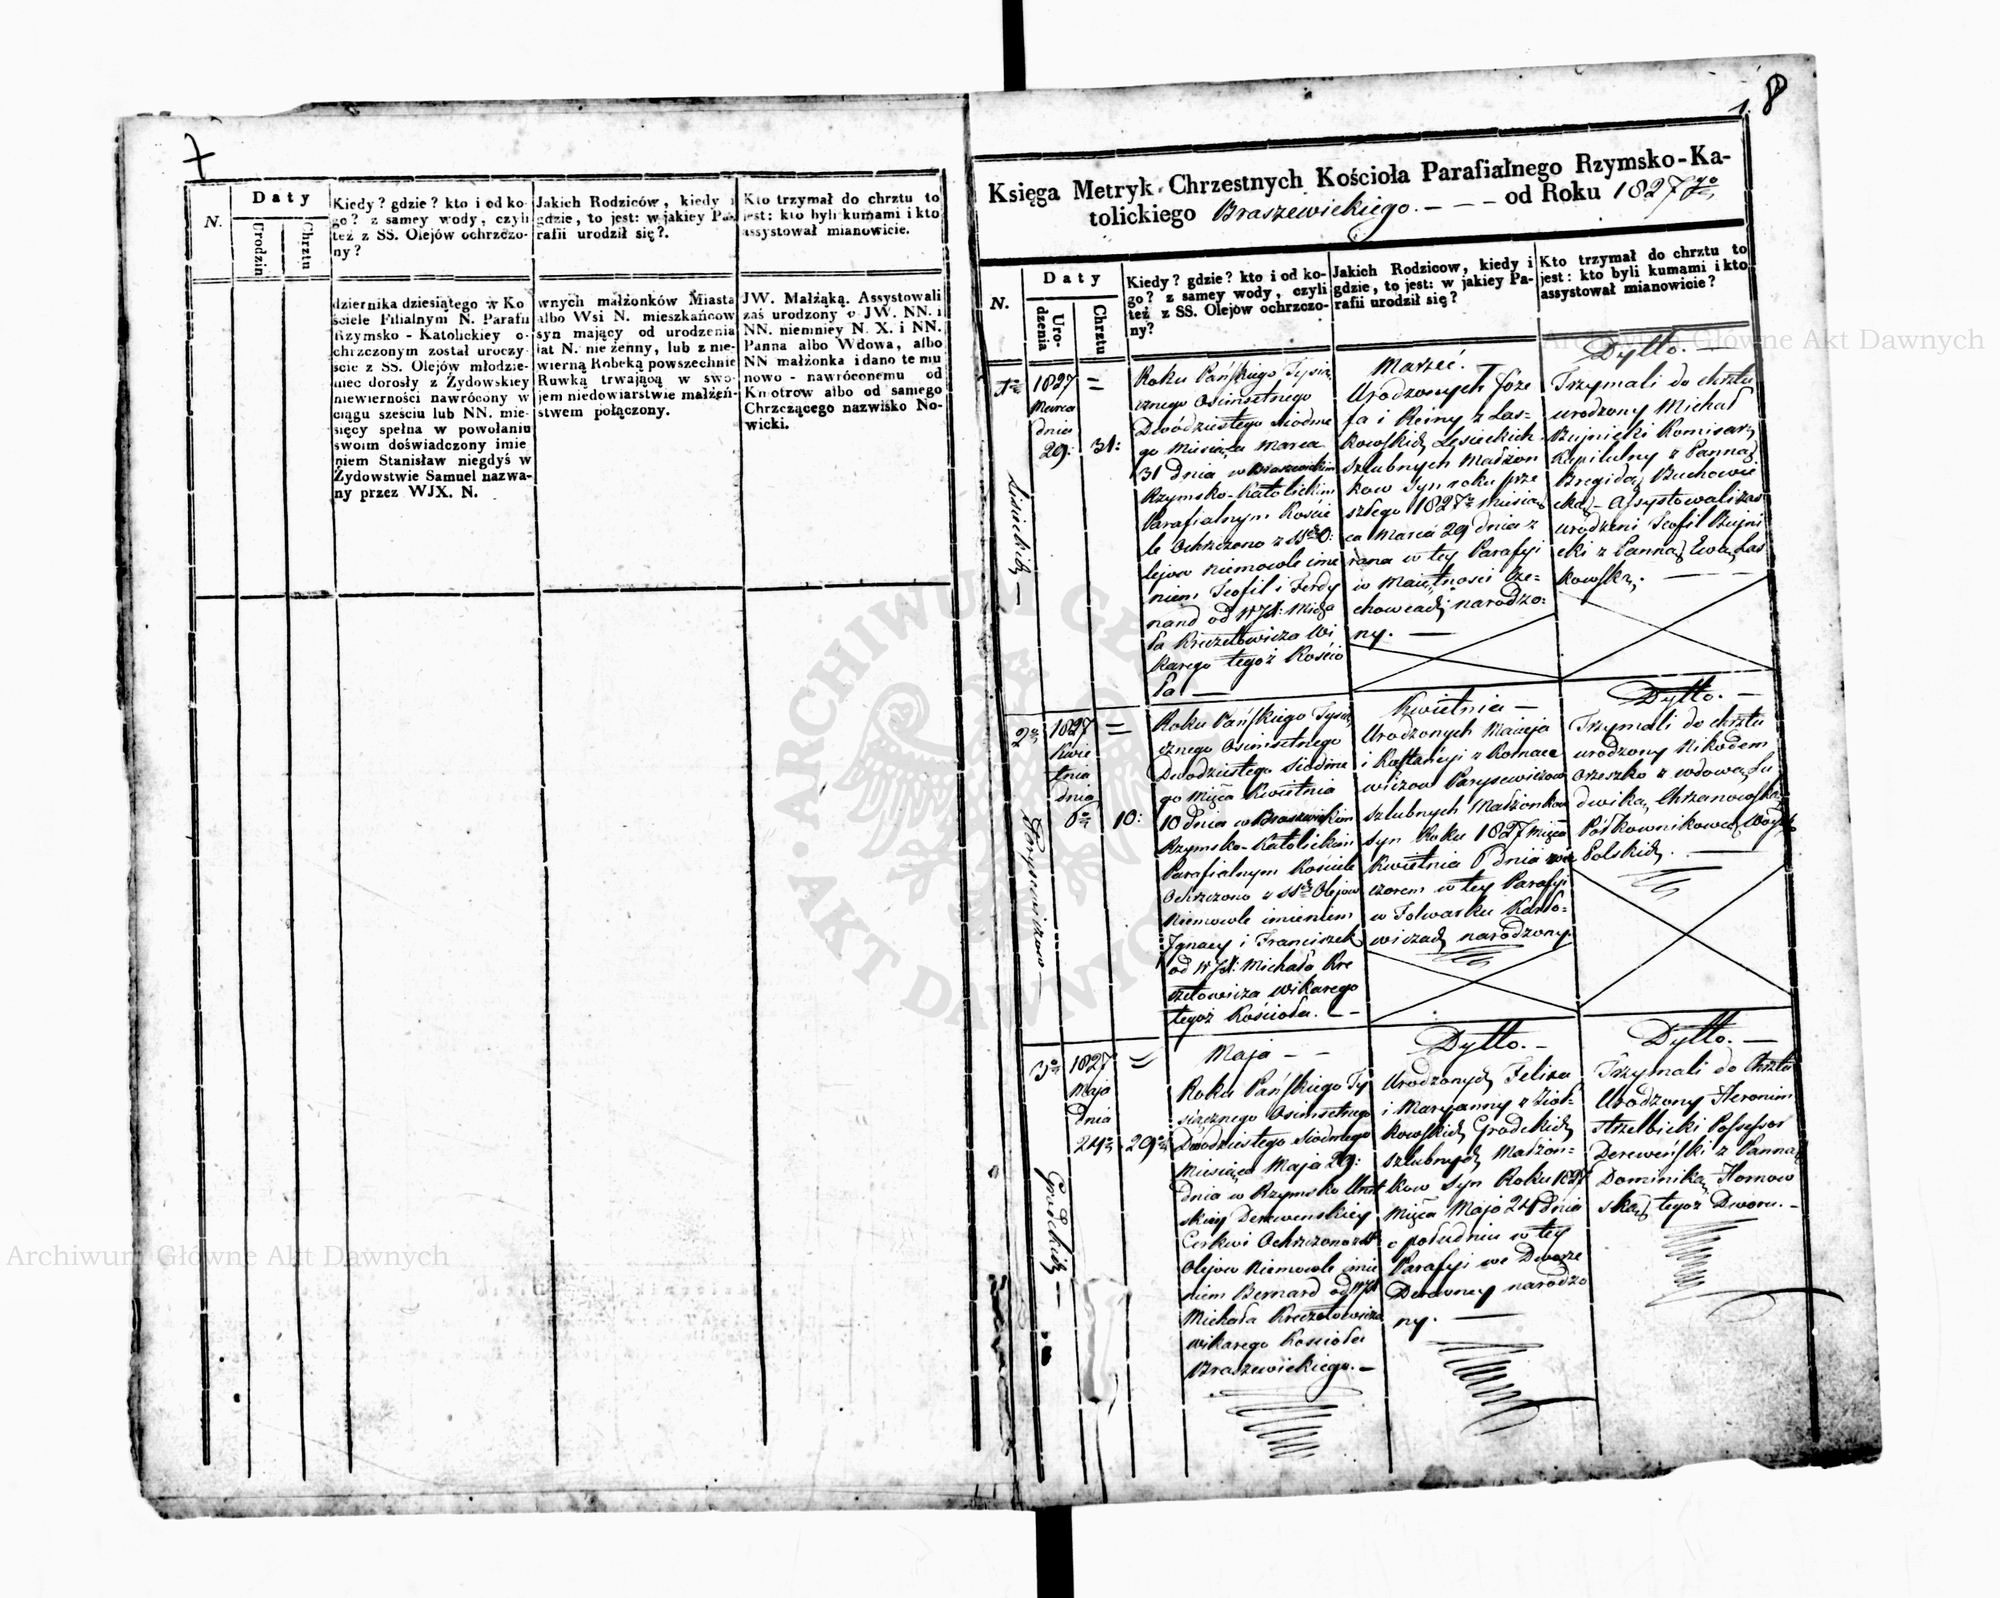 7
N.
Daty
Urodzin
Chrztu
Kiedy? gdzie? kto i od ko-
go? z samey wody, czyli
też z SS. Olejów ochrzczo-
ny?
Jakich Rodziców, kiedy i
gdzie, to jest: w jakiey Pa-
rafii urodził się?
Kto trzymał do chrztu to
jest: kto byli kumami i kto
assystował mianowicie.
dziernika dziesiątego w Ko
ściele Filialnym N. Parafii
Rzymsko - Katolickiey o-
chrzczonym został uroczy-
ście z SS. Olejów młodzie-
niec dorosły z Żydowskiey
niewierności nawrócony w
ciągu sześciu lub NN. mie-
sięcy spełna w powołaniu
swoim doświadczony imie
niem Stanisław niegdyś w
Żydowstwie Samuel nazwa-
ny przez WJX. N.
wnych małżonków Miasta
albo Wsi N. mieszkańców
syn mający od urodzenia
lat N. nie żenny, lub z nie-
wierną Robeką powszechnie
Ruwką trwającą w swo-
jem niedowiarstwie małżeń-
stwem połączony.
JW. Małżąką. Assystowali
zaś urodzony v JW. NN. i
NN. niemniey N. X. i NN.
Panna albo Wdowa, albo
NN małżonka i dano te mu
nowo - nawróconemu od
Kmotrow albo od samego
Chrzczącego nazwisko No-
wicki.
1. 8
Księga Metryk Chrzestnych Kościoła Parafialnego Rzymsko-Ka-
tolickiego Braszewickiego. - - - od Roku 1827go
N.
Daty
Uro-
dzenia
Chrztu
Kiedy? gdzie? kto i od ko-
go? z samey wody, czyli
też z SS. Olejów ochrzczo-
ny?
Jakich Rodzicow, kiedy i
gdzie, to jest: w jakiey Pa-
rafii urodził się?
Kto trzymał do chrztu to
jest: kto byli kumami i kto
assystował mianowicie?
1o
1827
Marca
dnia
29:
31:
Roku Pańskiego Tysią
cznego Osimsetnego
Dwódziestego siódme
go Miesiąca Marca
31 Dnia w Braszewickim
Rzymsko-Katolickim
Parafialnym Koście
le Ochrzczono z SStch O:
lejow Niemowle imie
niem Teofil i Ferdy
nand od WJX: Micha
ła Kreczetowicza Wi
karego tegoż Kościo
ła. —
Marzec.
Urodzonych Joze
fa i Reiny z Las=
kowskich Lisieckich
szlubnych Małżon
kow Syn roku prze
szłego 1827o Miesią
ca Marca 29 dnia z
rana w tey Parafyi
w Maiętnosci Oze-
chowcach narodzo:
ny. —
Dytto. —
Trzymali do chrztu
urodzony Michał
Bujnicki Komisarz
Kapitulny z Panną
Brygidą Buchowie
cką - Assystowali zas
urodzeni Teofil Bujni
cki z Panną Ewą Las
kowską. — —
2o
1827
Kwie
tnia
dnia
6o
10:
Roku Pańskiego Tysią
cznego Osimsetnego
Dwodziestego Siodme
go Mięca Kwietnia
10 dnia w Braszewickim
Rzymsko-Katolickim
Parafialnym Kosciele
Ochrzczono z SStch Olejow
Niemowle imieniem
Ignacy i Franciszek
od WJX: Michała Kre
czetowicza Wikarego
tegoż Kościoła. —
Kwietnia —
Urodzonych Macieja
i Konstancyi z Romace
wiczow Parysewiczow
szlubnych Małżonkow
syn Roku 1827 Mięca
Kwietnia 6 dnia wie
czorem w tey Parafyi
w Folwarku Karło=
wiczach narodzony.
Dytto. —
Trzymali do chrztu
urodzony Nikodem
Orzeszko z wdową Lu
dwiką Chrzanowską
Półkownikową Woysk
Polskich. —
3o
1827
Maja
Dnia
24o
29o
Maja — —
Roku Pańskiego Ty
siącznego Osimsetnego
Dwodziestego siodmego
Miesiąca Maja 29:
dnia w Rzymsko Unit
skiey Derewenskiey
Cerkwi Ochrzczono z SS
Olejow Niemowle imie
niem Bernard od WJX
Michała Kreczetowicza
Wikarego Kościoła
Braszewickiego. —
Dytto. —
Urodzonych Felixa
i Maryanny z Ziół=
kowskich Grodzkich
szlubnych Małżon=
kow syn Roku 1827
Mięca Maja 24 Dnia
o południu w tey
Parafyi we Dworze
Derewney narodzo
ny. —
Dytto. —
Trzymali do Chrztu
Urodzony Heronim
Strzelbicki Possessor
Dereweński z Panną
Dominiką Homow
ską tegoż Dworu. —
Archiwum Główne Akt Dawnych
Archiwum Główne Akt Dawnych
ARCHIWUM GŁÓWNE AKT DAWNYCH